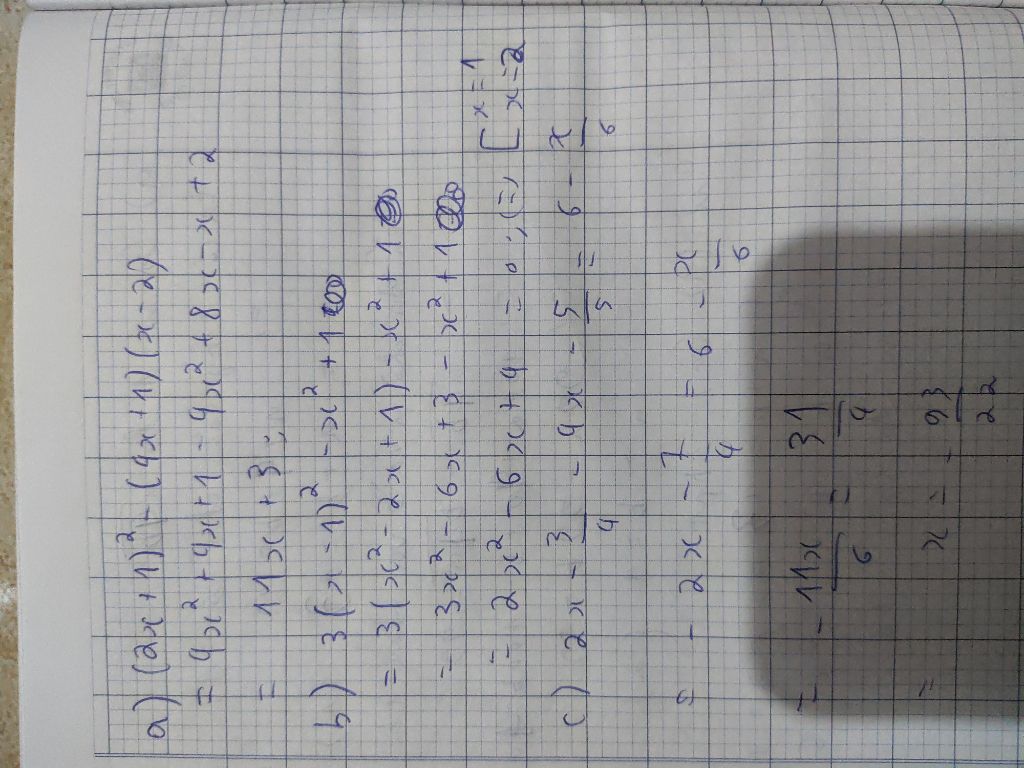 a) (2x + 1)² - (4x + 1)(x - 2)
= 4x² + 4x + 1 - 4x² + 8x - x + 2
= 11x + 3;
b) 3(x - 1)² - x² + 1
= 3(x² - 2x + 1) - x² + 1
= 3x² - 6x + 3 - x² + 1
= 2x² - 6x + 4 = 0; (=) [ x = 1 x = 2
c) 2x - 3/4 - 4x - 5/5 = 6 - x/6
= - 2x - 7/4 = 6 - x/6
= - 11x/6 = 31/4
= x = - 93/22